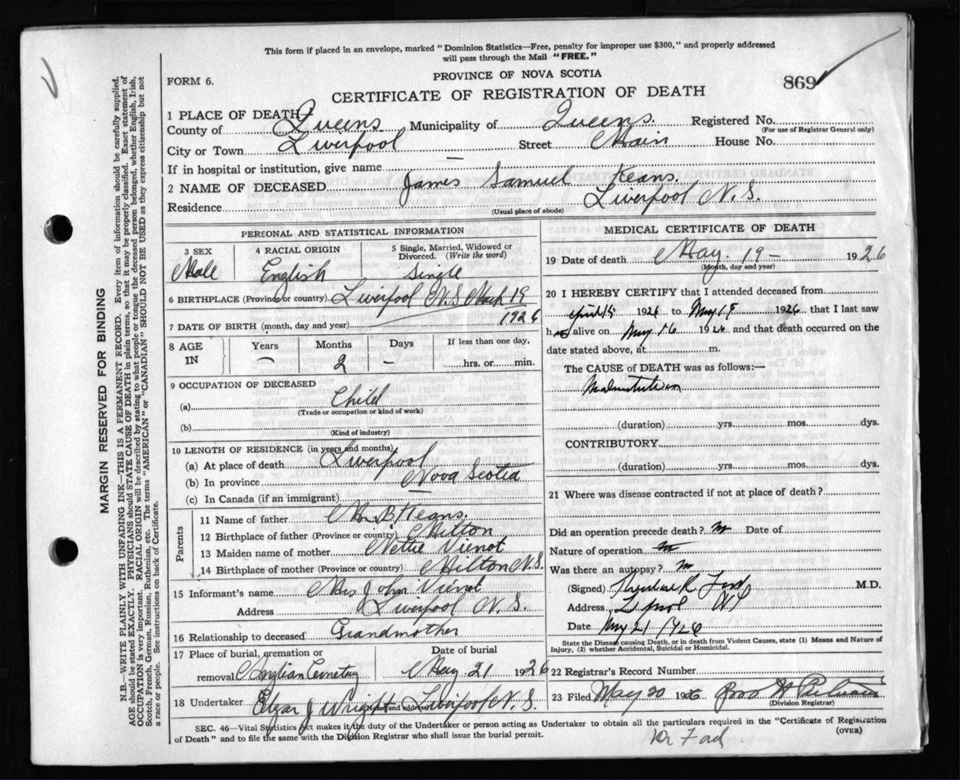 This form if placed in an envelope, marked "Dominion Statistics—Free, penalty for improper use $300," and properly addressed
will pass through the Mail "FREE."
PROVINCE OF NOVA SCOTIA
FORM 6.
869
CERTIFICATE OF REGISTRATION OF DEATH
1 PLACE OF DEATH
County of Queens Municipality of Queens Registered No.
(For use of Registrar General only)
City or Town Liverpool Street Main House No.
If in hospital or institution, give name —
2 NAME OF DECEASED James Samuel Keans
Residence Liverpool N.S.
(Usual place of abode)
PERSONAL AND STATISTICAL INFORMATION
3 SEX 4 RACIAL ORIGIN 5 Single, Married, Widowed or
Divorced. (Write the word)
Male English Single
6 BIRTHPLACE (Province or country) Liverpool N.S. March 19
1926
7 DATE OF BIRTH (month, day and year)
8 AGE IN Years Months Days If less than one day,
— 2 — hrs. or min.
9 OCCUPATION OF DECEASED
(a) Child
(Trade or occupation or kind of work)
(b)
(Kind of industry)
10 LENGTH OF RESIDENCE (in years and months)
(a) At place of death Liverpool
(b) In province Nova Scotia
(c) In Canada (if an immigrant) —
Parents
11 Name of father B Keans.
12 Birthplace of father (Province or country) Milton
13 Maiden name of mother Nettie Vienot
14 Birthplace of mother (Province or country) Milton N.S.
15 Informant's name Mrs John Vienot
Address Liverpool N.S.
16 Relationship to deceased Grandmother
17 Place of burial, cremation or Date of burial
removal Anglian Cemetery May 21 1926
18 Undertaker J Wright Liverpool N.S.
MEDICAL CERTIFICATE OF DEATH
19 Date of death May 19 — 1926
(Month, day and year)
20 I HEREBY CERTIFY that I attended deceased from
April 15 1926 to May 19 1926 that I last saw
h alive on May 16 1926 and that death occurred on
date stated above, at m.
The CAUSE OF DEATH was as follows:—
Malnutrition
(duration) yrs. mos. dys.
CONTRIBUTORY
(duration) yrs. mos. dys.
21 Where was disease contracted if not at place of death?
Did an operation precede death? no Date of
Nature of operation
Was there an autopsy? no
(Signed) Ford M.D.
Address L'pool NS
Date May 21 1926
State the Disease causing Death, or in death from Violent Causes, state (1) Means and Nature of
Injury, (2) whether Accidental, Suicidal or Homicidal.
22 Registrar's Record Number
23 Filed May 20 1926
(Division Registrar)
SEC. 46—Vital Statistics Act makes it the duty of the Undertaker or person acting as Undertaker to obtain all the particulars required in the "Certificate of Registration
of Death" and to file the same with the Division Registrar who shall issue the burial permit.
(OVER)
Dr Ford
MARGIN RESERVED FOR BINDING
N.B.—WRITE PLAINLY WITH UNFADING INK—THIS IS A PERMANENT RECORD. Every item of information should be carefully supplied.
AGE should be stated EXACTLY. PHYSICIANS should STATE CAUSE OF DEATH in plain terms, so that it may be properly classified. Exact statement of
OCCUPATION is very important. RACIAL ORIGIN will be described by stating to what people or tongue the deceased person belonged, whether English, Irish,
Scotch, French, German, Russian, Ruthenian, etc. The terms "AMERICAN" or "CANADIAN" SHOULD NOT BE USED as they express citizenship but not
a race or people. See instructions on back of Certificate.